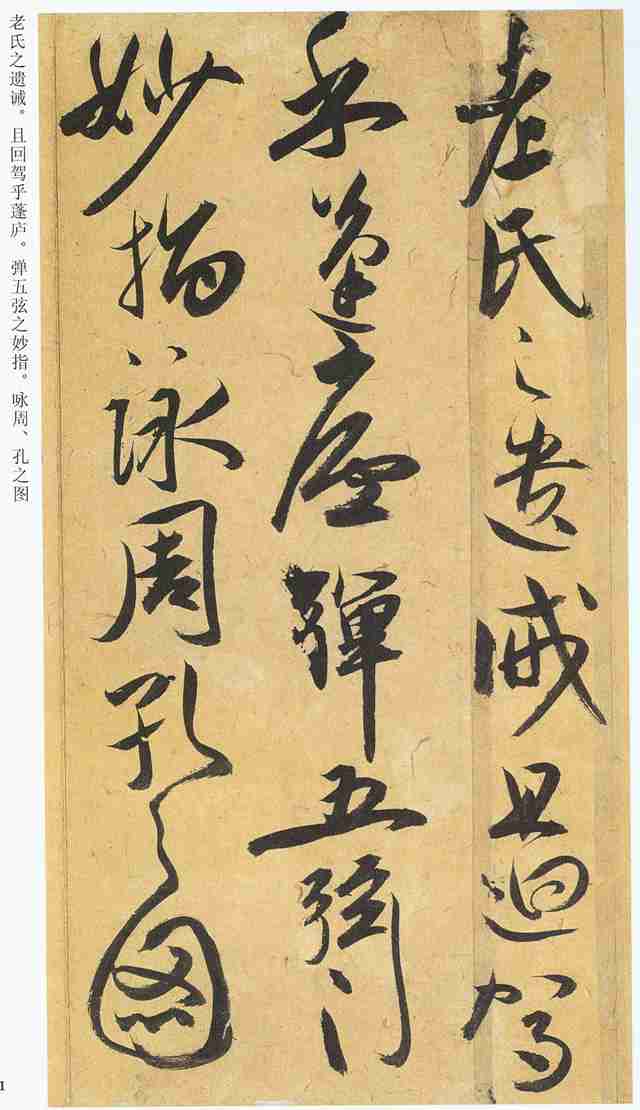 老氏之遺誡且迴駕
乎蓬廬彈五弦之
妙指詠周孔之圖
老氏之遗诫。且回驾乎蓬庐。弹五弦之妙指。咏周、孔之图
1